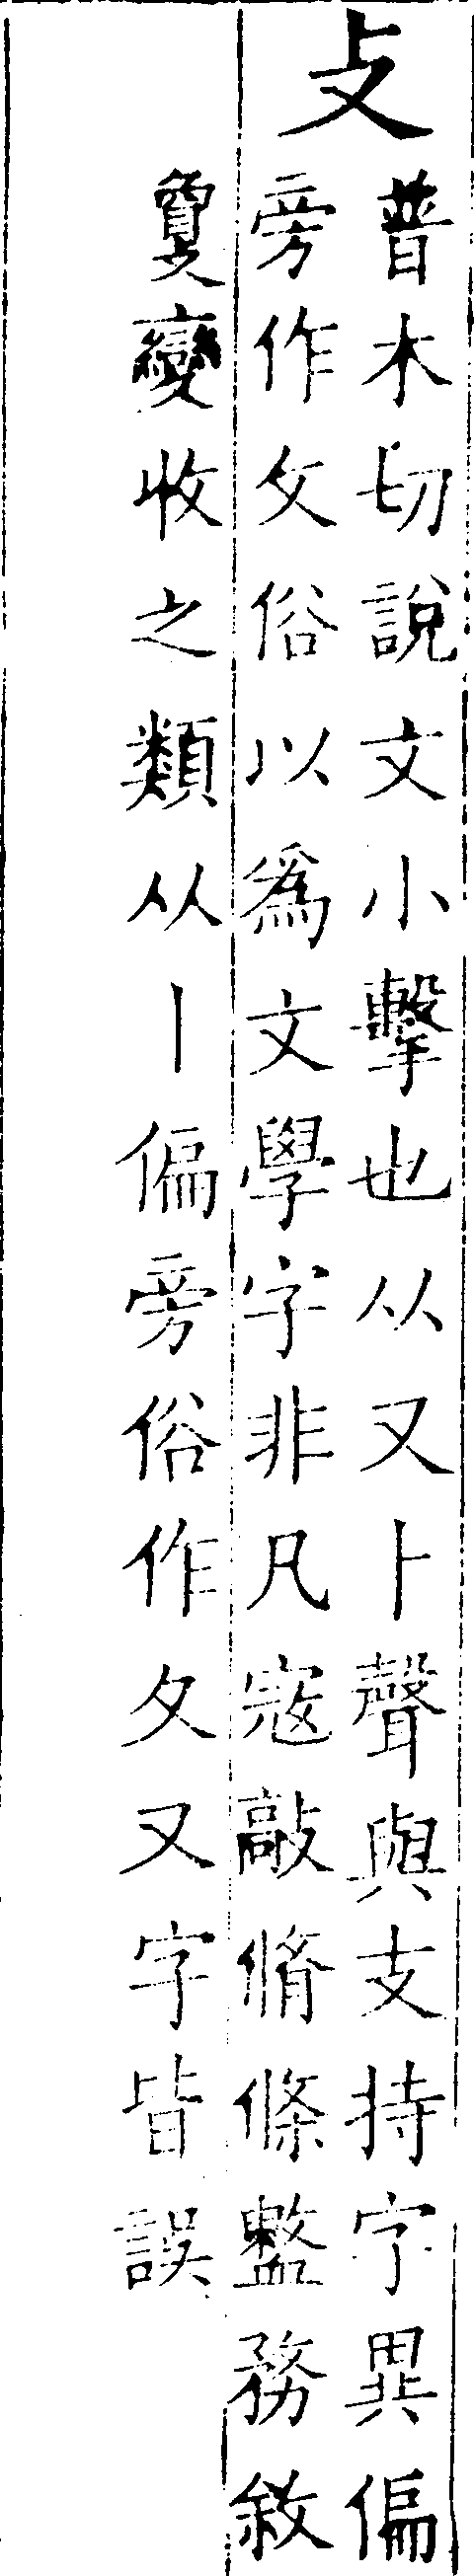 攴
普木切說文小擊也从又卜聲與支持字異偏
旁作攵俗以爲文學字非凡寇敲脩條整務敘
敻變收之類从丨偏旁俗作夂又字皆誤